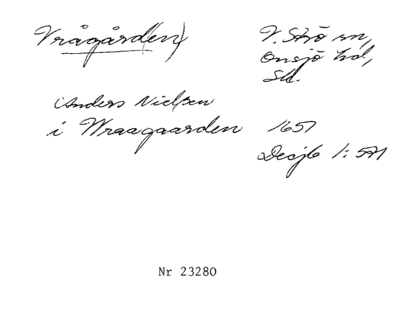 Vrågården)
V. Strö sn,
Onsjö hd,
Sk.
Anders Nielsen
i Wraagaarden 1657
Decjb 1: 571
Nr 23280